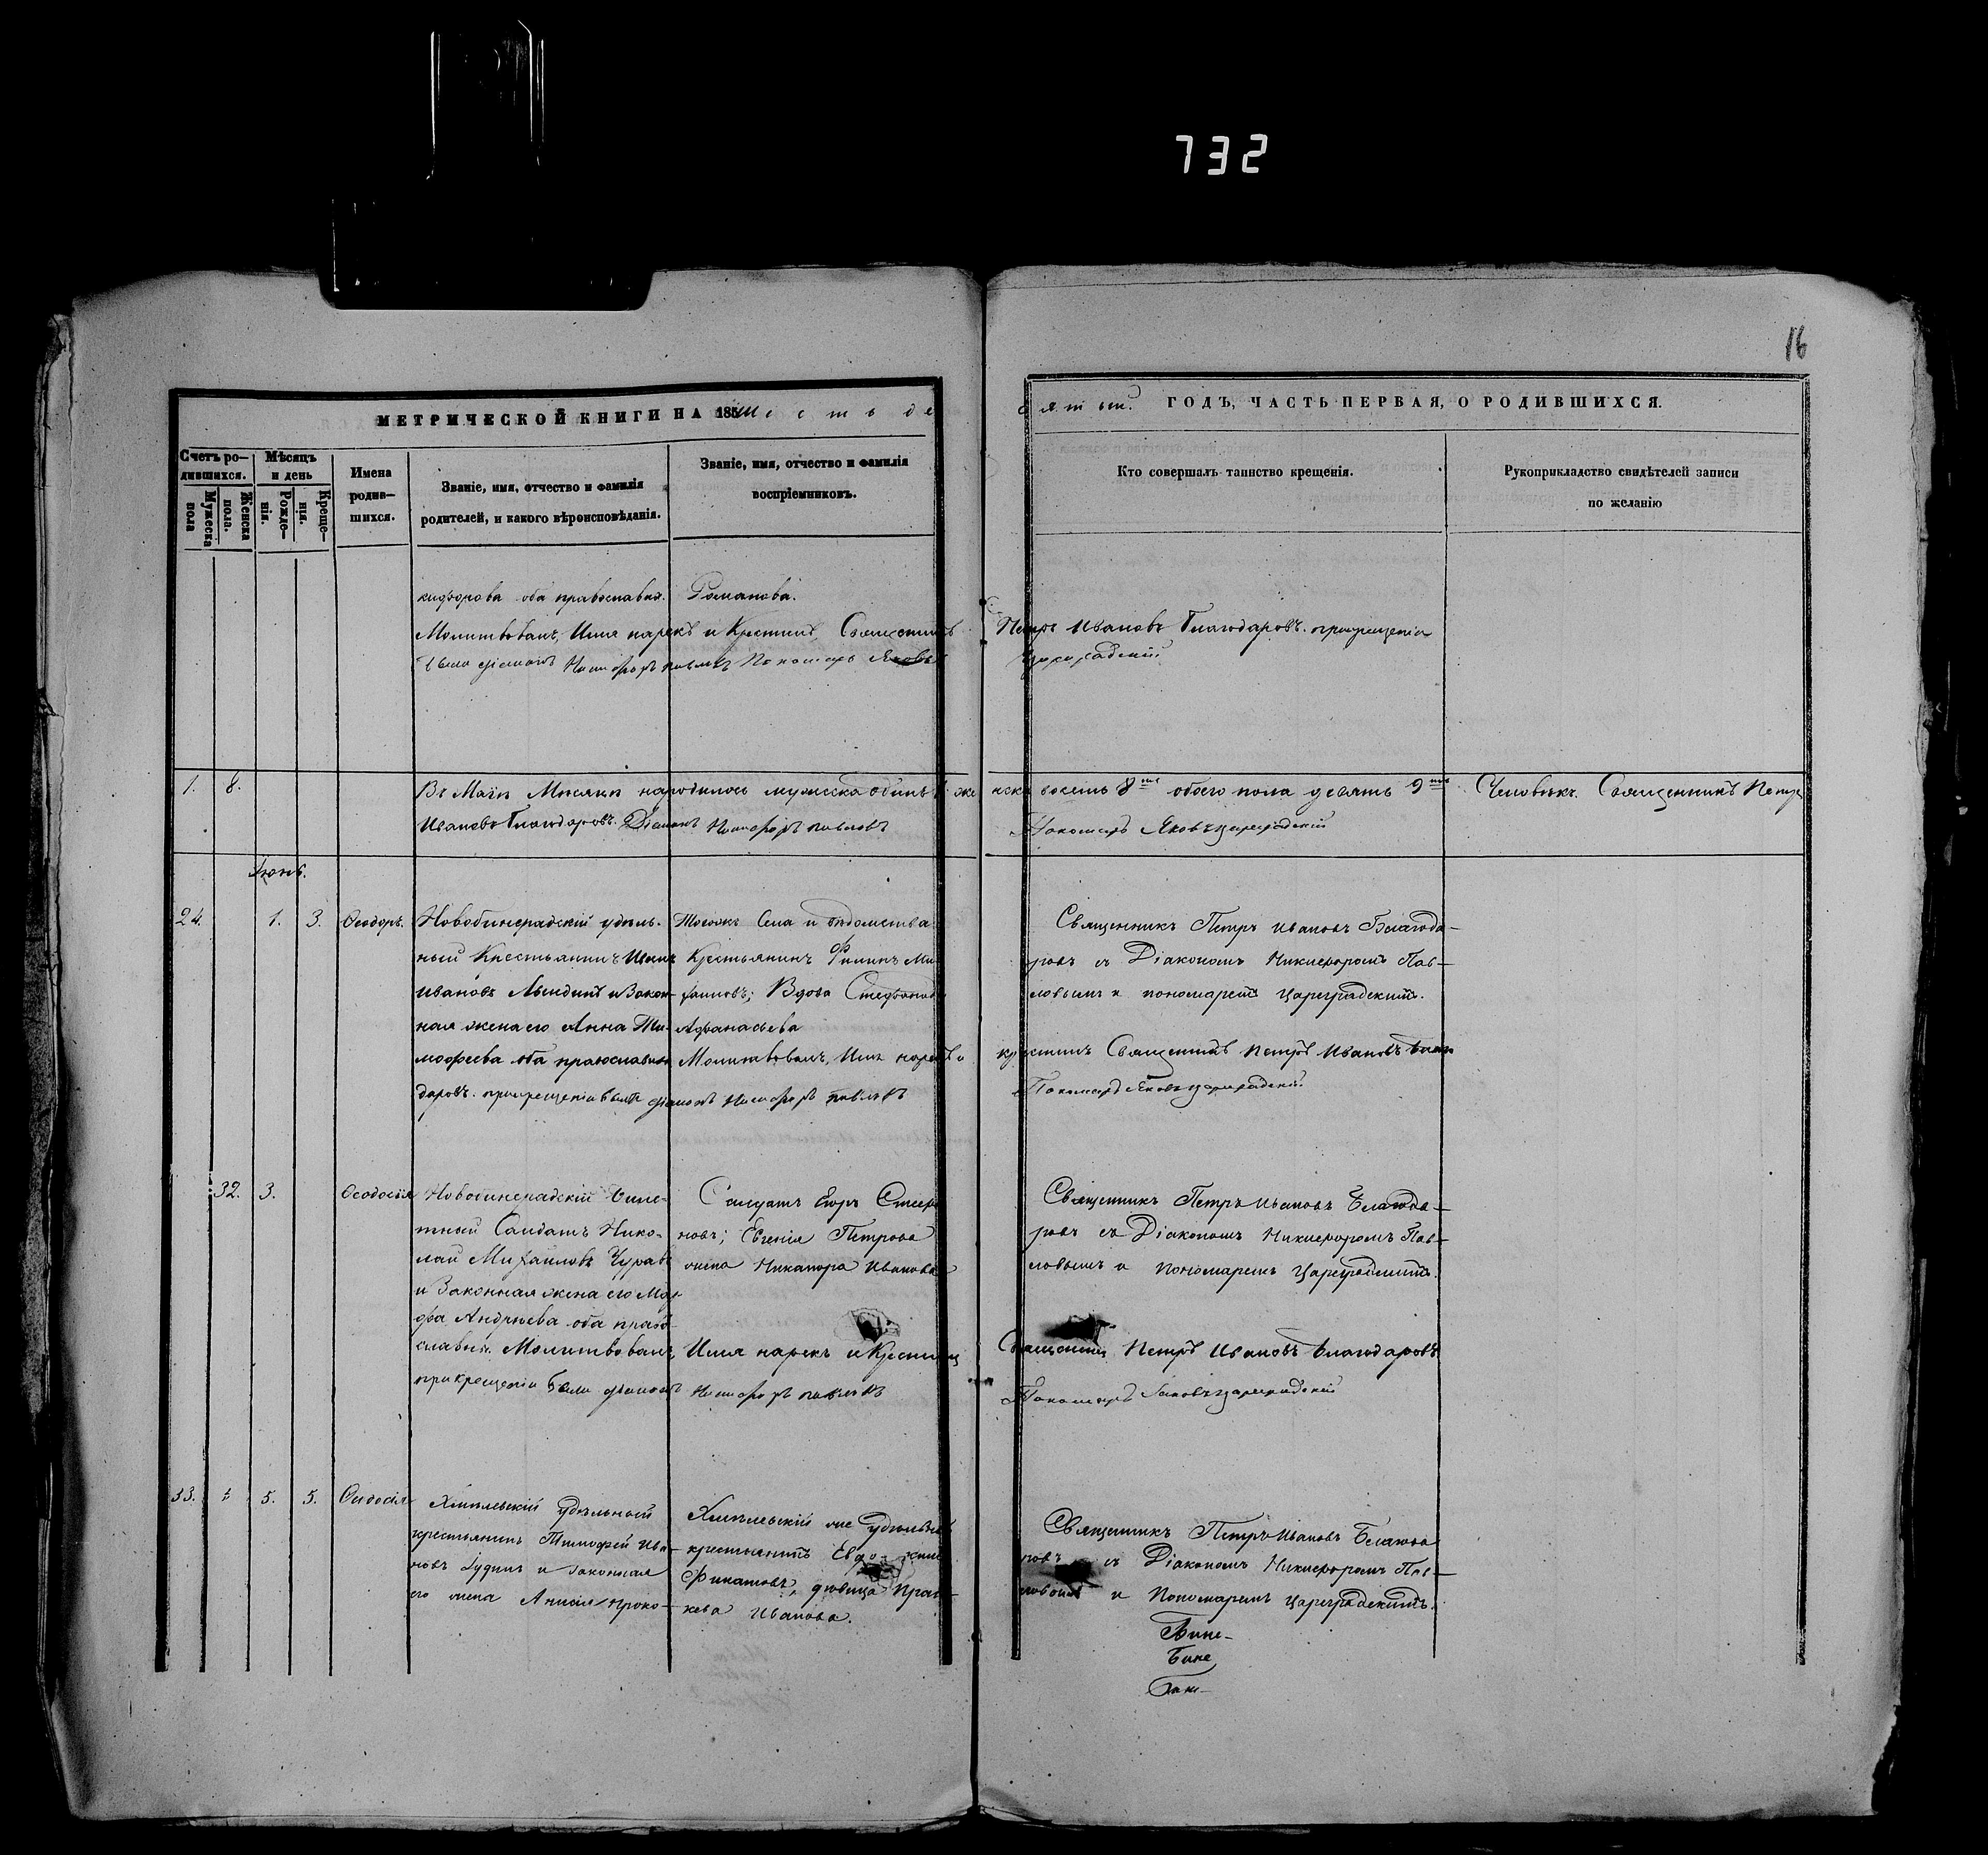 732
16
МЕТРИЧЕСКОЙ КНИГИ НА 185 шестьде
сятый. ГОДЪ, ЧАСТЬ ПЕРВАЯ, О РОДИВШИХСЯ.
Счетъ ро-
дившихся.
Мужеска
пола
Женска
пола.
Мѣсяцъ
и день
Рожде-
нія.
Креще-
нія.
Имена
родив-
шихся.
Званіе, имя, отчество и фамилія
родителей, и какого вѣроисповѣданія.
Званіе, имя, отчество и фамилія
воспріемниковъ.
Кто совершалъ таинство крещенія.
Рукоприкладство свидѣтелей записи
по желанію
кифорова оба православн. Романова.
Молитвовалъ, Имя нарекъ и Крестилъ Священникъ Петръ Ивановъ Благодаровъ. при крещеніи
были діаконъ Никифоръ Павловъ Пономарь Яковъ Цареградскій
1. 8. Въ Маіѣ Мѣсяцѣ народилось мужеска одинъ 1 женска восемь 8 обоего пола девять 9 Человѣкъ. Священникъ Петръ
Ивановъ Благодаровъ. Діаконъ Никифоръ Павловъ Пономарь Яковъ Цареградскій
Іюнь.
24. 1. 3. Ѳеодоръ.
Новобинерадскій удѣль-
ный Крестьянинъ
Ивановъ и Закон-
ная жена его Анна Ти-
мофеева оба православн
Тогожъ Села и вѣдомства
Крестьянинъ Филипъ Ми-
хаиловъ; Вдова Стефанида
Афанасьева
Священникъ Петръ Ивановъ Благода-
ровъ съ Діакономъ Никифоромъ Пав-
ловымъ и пономаремъ Цареградскимъ.
Молитвовалъ, Имя нарекъ и крестилъ Священникъ Петръ Ивановъ Благо
даровъ. при крещеніи были діаконъ Никифоръ Павловъ Пономарь Яковъ Цареградскій
32. 3. Ѳеодосія
Новобинерадскій биле-
тный Солдатъ Нико-
лай Михаиловъ Чурав
и Законная жена его Мар
фа Андрѣева оба право-
славн. Молитвовалъ, Имя нарекъ и Крестилъ Священникъ Петръ Ивановъ Благодаровъ
при крещеніи были діаконъ Никифоръ Павловъ Пономарь Яковъ Цареградскій
Солдатъ Егоръ
новъ; Евгенія Петрова
жена Никанора Иванова
Священникъ Петръ Ивановъ Благода-
ровъ съ Діакономъ Никифоромъ Пав-
ловымъ и пономаремъ Цареградскимъ.
33. 5. 5. Ѳеодосія
Хмѣлевскій удѣльный
крестьянинъ Тимофей Ива-
новъ и законная
его жена Анисія Проко-
Хмѣлевскій же удѣльный
крестьянинъ Евдокимъ
Филатовъ, дѣвица Прас-
кева Иванова.
Священникъ Петръ Ивановъ Благода
ровъ съ Діакономъ Никифоромъ Пав-
ловымъ и Пономаремъ Цареградскимъ.